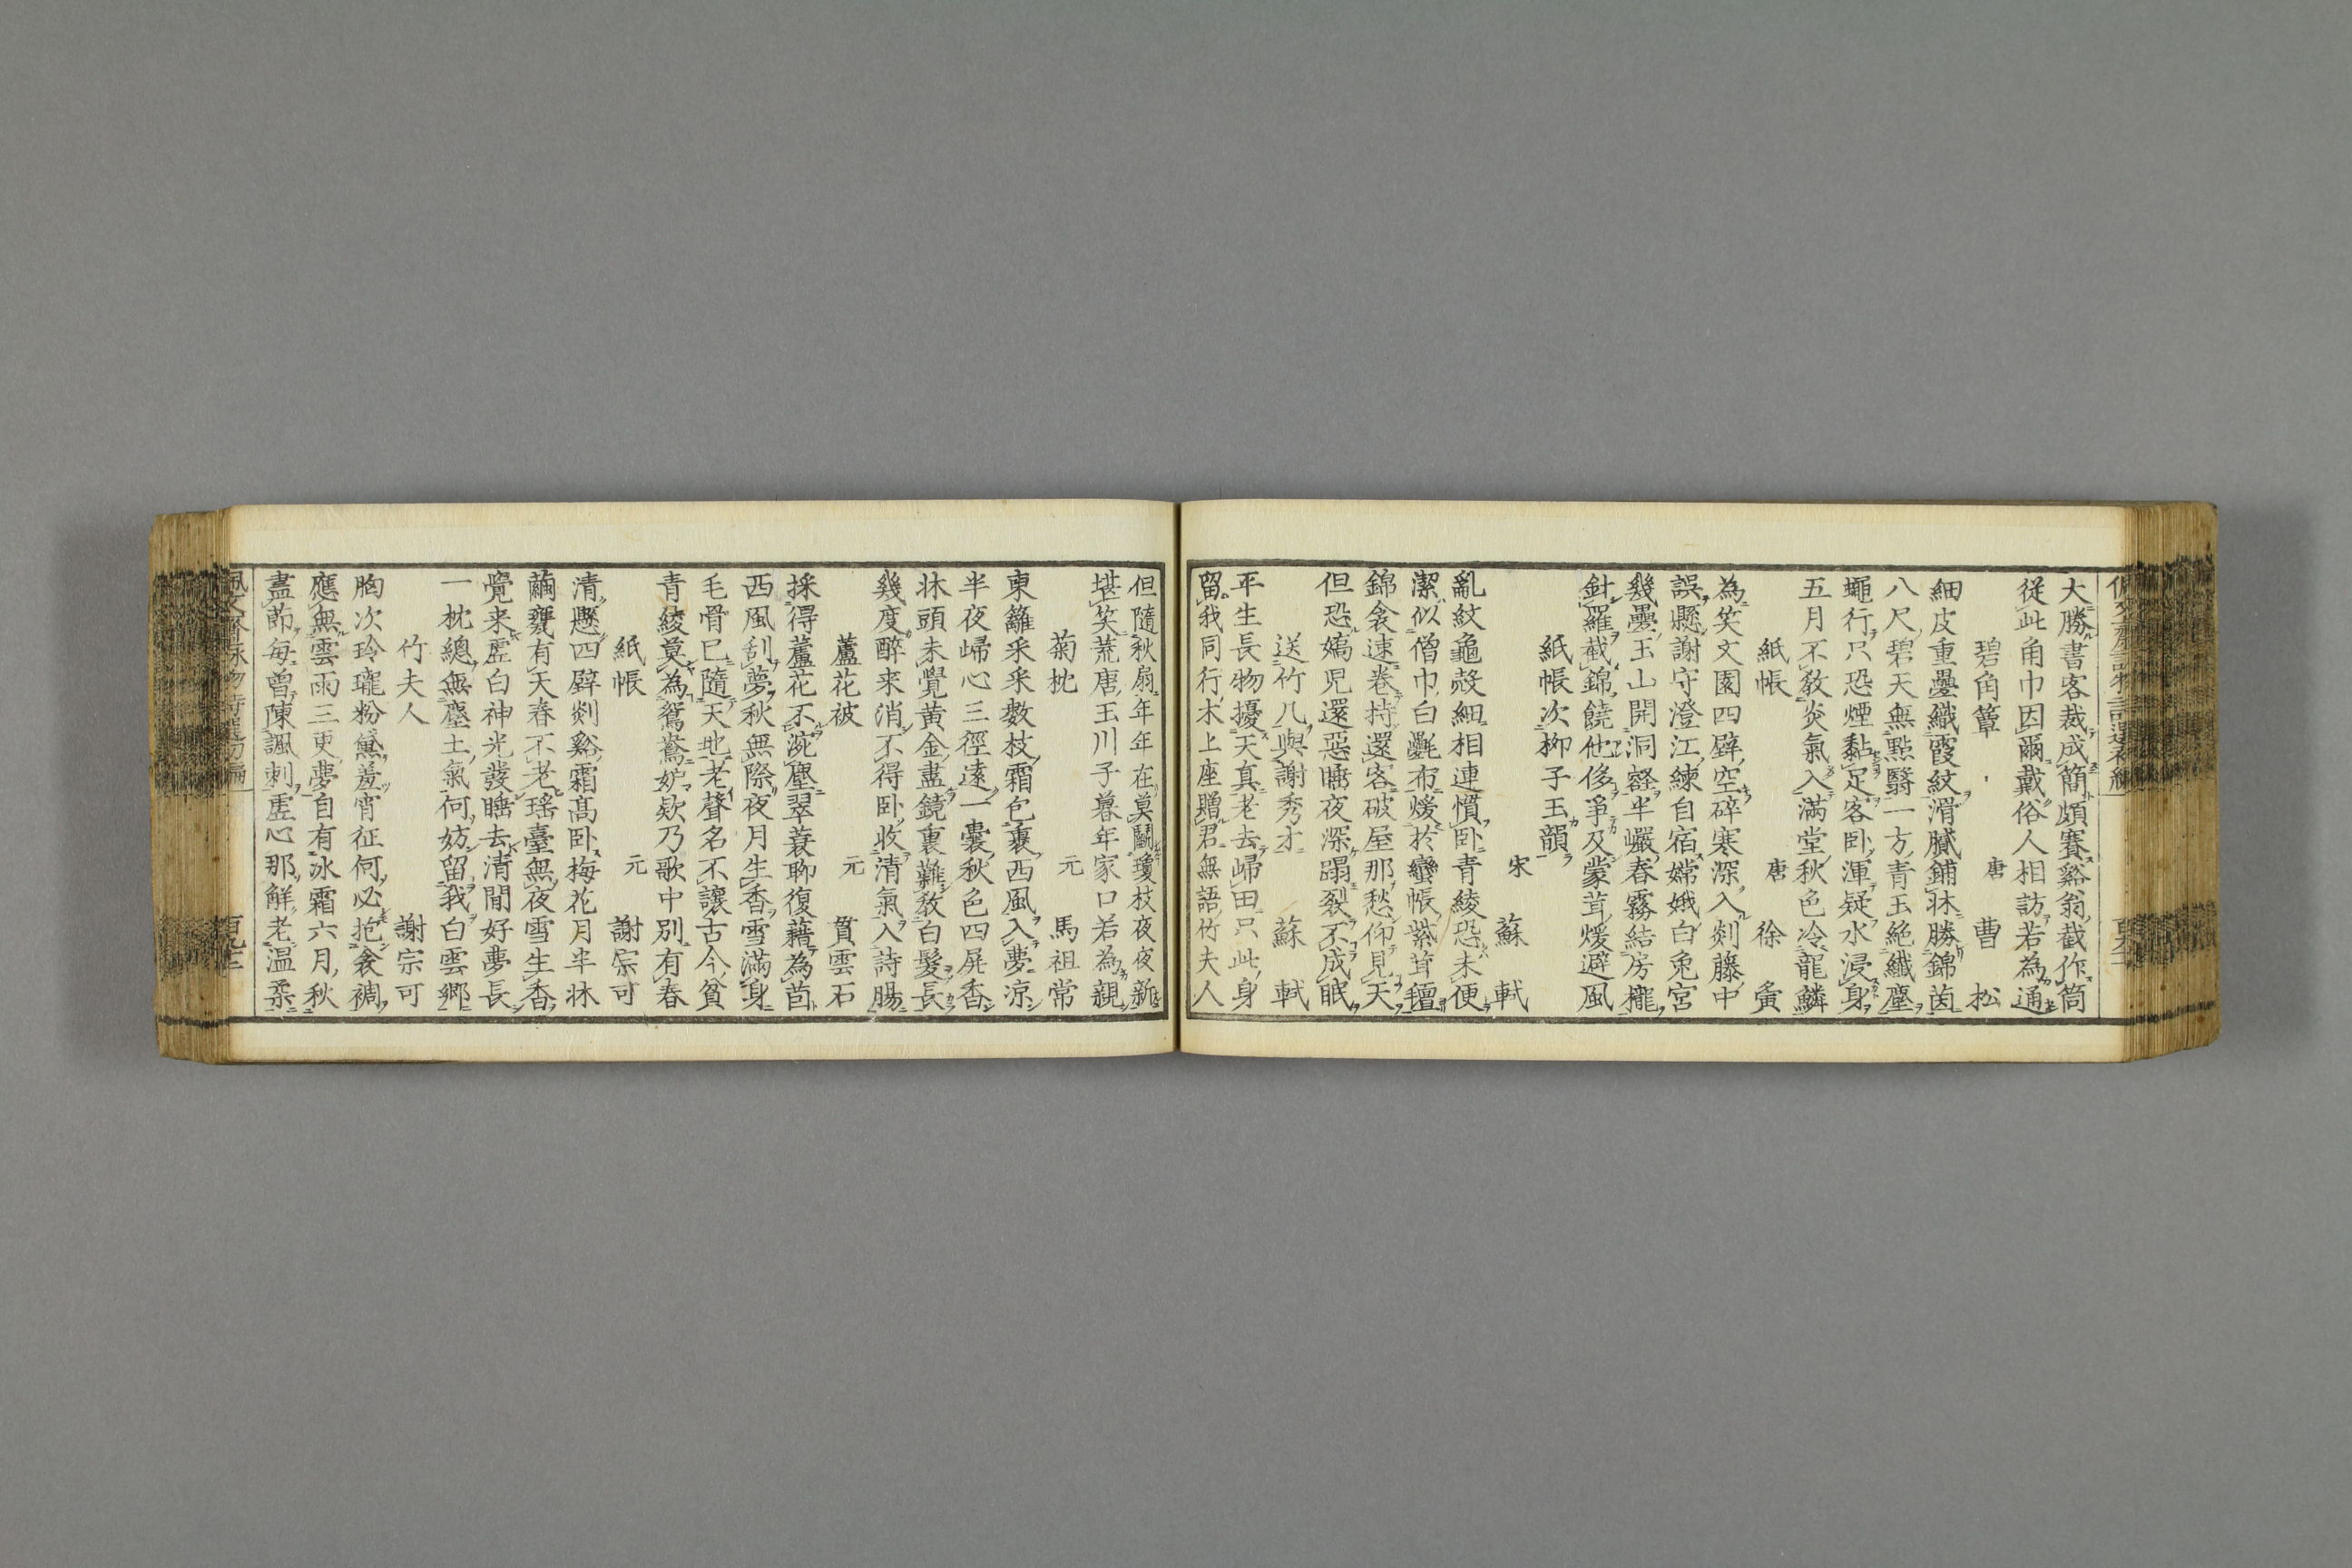 大勝書客裁成簡頗賽谿翁截作筒
從此角巾因爾戴俗人相訪若為通
碧角簟　唐　曹松
細皮重疊織霞紋滑膩鋪牀勝錦茵
八尺碧天無點翳一方青玉絕纖塵
蠅行只恐煙黏足客臥渾疑水浸身
五月不教炎氣入滿堂秋色冷龍鱗
紙帳　唐　徐夤
為笑文園四壁空碎寒深入剡藤中
誤懸謝守澄江練自宿嫦娥白兎宮
幾疊玉山開洞壑半巖春霧結房櫳
針羅截錦饒他侈爭及蒙茸煖避風
紙帳次柳子玉韻
宋　蘇軾
亂紋龜殼細相連慣臥青綾恐未便
潔似僧巾白㲲布煖於蠻帳紫茸氊
錦衾速卷持還客破屋那愁仰見天
但恐嬌兒還惡睡夜深蹋裂不成眠
送竹几與謝秀才　蘇軾
平生長物擾天真老去歸田只此身
留我同行木上座贈君無語竹夫人
但隨秋扇年年在莫鬭瓊枝夜夜新
堪笑荒唐玉川子暮年家口若為親
菊枕　元　馬祖常
東籬采采數枝霜包裹西風入夢凉
半夜歸心三徑遠一囊秋色四屏香
牀頭未覺黃金盡鏡裏難教白髮長
幾度醉来消不得臥收清氣入詩腸
蘆花被　元　貫雲石
採得蘆花不涴塵翠蓑聊復藉為茵
西風刮夢秋無際夜月生香雪滿身
毛骨已隨天地老聲名不讓古今貧
青綾莫為鴛鴦妒欸乃歌中別有春
紙帳　元　謝宗可
清懸四壁剡谿霜高臥梅花月半牀
繭甕有天春不老瑤臺無夜雪生香
覺来虛白神光發睡去清閒好夢長
一枕總無塵土氣何妨留我白雲鄉
竹夫人　謝宗可
胸次玲瓏粉黛羞宵征何必抱衾裯
應無雲雨三更夢自有冰霜六月秋
盡節每曾陳諷刺虛心那解老溫柔